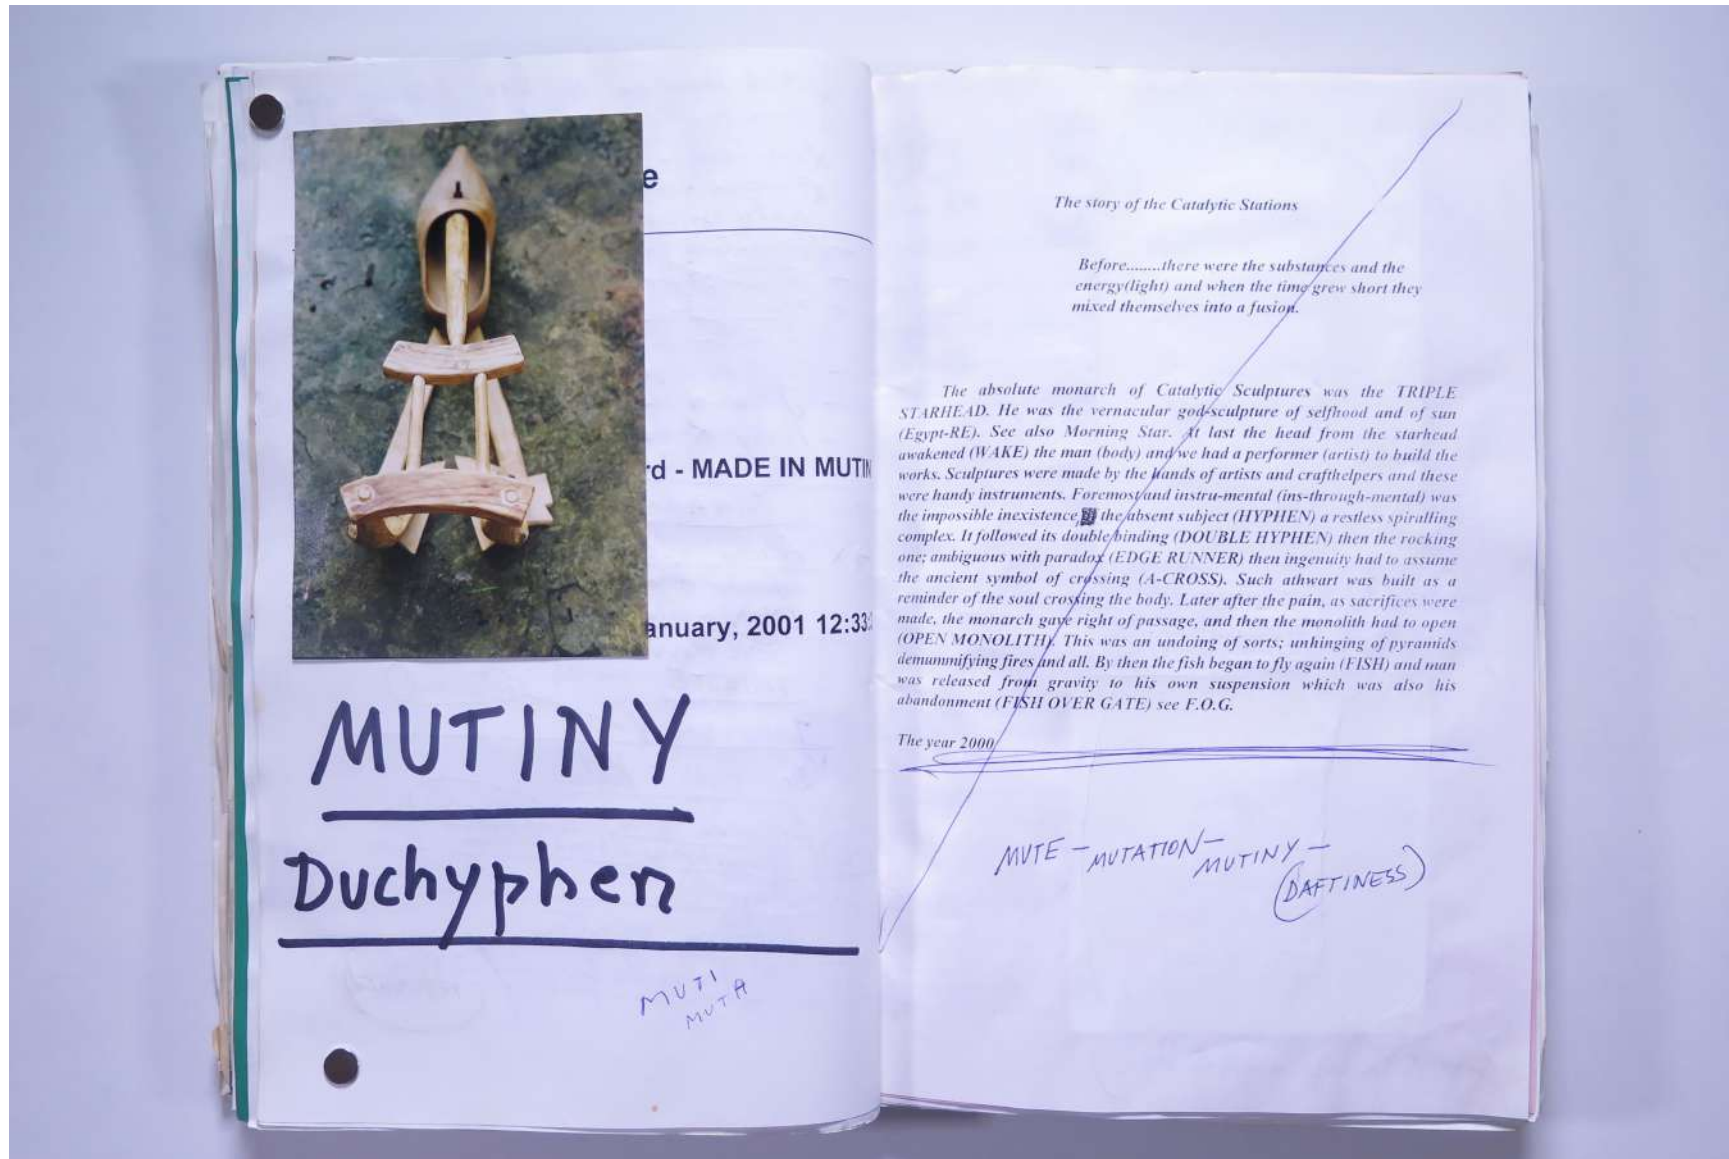 e
rd - MADE IN MUTIN
anuary, 2001 12:33:
MUTINY
Duchyphen
MUTI
MUTA
The story of the Catalytic Stations
Before........there were the substances and the
energy(light) and when the time grew short they
mixed themselves into a fusion.
The absolute monarch of Catalytic Sculptures was the TRIPLE
STARHEAD. He was the vernacular god-sculpture of selfhood and of sun
(Egypt-RE). See also Morning Star. At last the head from the starhead
awakened (WAKE) the man (body) and we had a performer (artist) to build the
works. Sculptures were made by the hands of artists and crafthelpers and these
were handy instruments. Foremost and instru-mental (ins-through-mental) was
the impossible inexistence, the absent subject (HYPHEN) a restless spiralling
complex. It followed its double binding (DOUBLE HYPHEN) then the rocking
one; ambiguous with paradox (EDGE RUNNER) then ingenuity had to assume
the ancient symbol of crossing (A-CROSS). Such athwart was built as a
reminder of the soul crossing the body. Later after the pain, as sacrifices were
made, the monarch gave right of passage, and then the monolith had to open
(OPEN MONOLITH). This was an undoing of sorts; unhinging of pyramids
demummifying fires and all. By then the fish began to fly again (FISH) and man
was released from gravity to his own suspension which was also his
abandonment (FISH OVER GATE) see F.O.G.
The year 2000
MUTE - MUTATION - MUTINY -
(DAFTINESS)